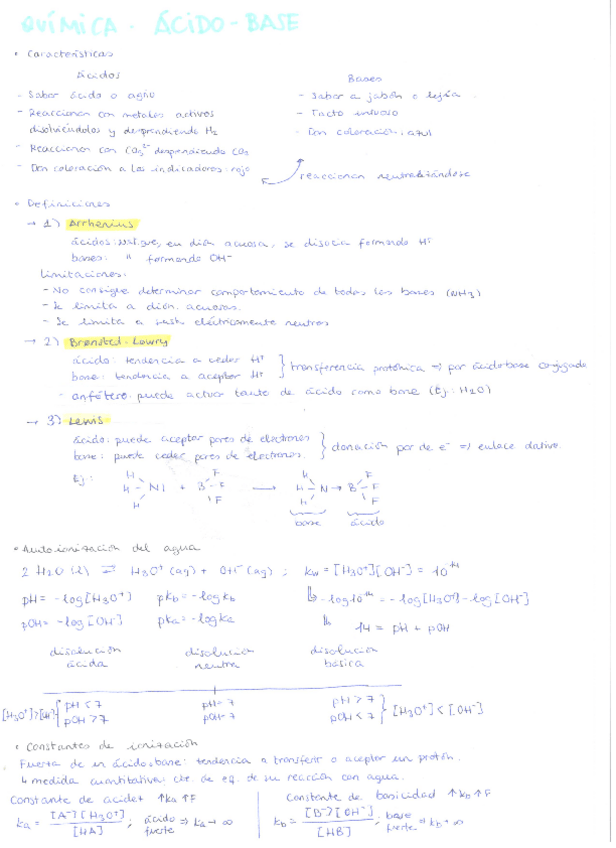 QUÍMICA - ÁCIDO-BASE
• Características
Ácidos
- Sabor ácido o agrio
- Reaccionan con metales activos
disolviéndolos y desprendiendo H₂
- Reaccionan con CO₃²⁻ desprendiendo CO₂
- Dan coloración a los indicadores: rojo
Bases
- Sabor a jabón o lejía.
- Tacto untuoso
- Dan coloración: azul
reaccionan neutralizándose
• Definiciones
→ 1) Arrhenius
ácidos: sust. que, en disón acuosa, se disocia formando H⁺
bases: " formando OH⁻
Limitaciones:
- No consigue determinar comportamiento de todas las bases (NH₃)
- Se limita a disón. acuosas.
- Se limita a sust. eléctricamente neutras
→ 2) Brønsted-Lowry
ácido: tendencia a ceder H⁺
base: tendencia a aceptar H⁺ } transferencia protónica ⇒ par ácido base conjugado
- anfótero: puede actuar tanto de ácido como base (Ej: H₂O)
→ 3) Lewis
ácido: puede aceptar pares de electrones
base: puede ceder pares de electrones. } donación par de e⁻ ⇒ enlace dativo.
Ej:
H F H F
H - N| + B - F → H - N → B - F
H F H F
base ácido
• Autoionización del agua
2 H₂O (l) ⇄ H₃O⁺ (aq) + OH⁻ (aq) ; Kw = [H₃O⁺][OH⁻] = 10⁻¹⁴
pH = -log[H₃O⁺] pKb = -logKb ↳ -log10⁻¹⁴ = -log[H₃O⁺] - log[OH⁻]
pOH = -log[OH⁻] pKa = -logKa ↳ 14 = pH + pOH
disolución ácida disolución neutra disolución básica
[H₃O⁺]>[OH⁻] { pH < 7 pH = 7 pH > 7 } [H₃O⁺] < [OH⁻]
pOH > 7 pOH = 7 pOH < 7
• Constantes de ionización
Fuerza de un ácido o base: tendencia a transferir o aceptar un protón.
↳ medida cuantitativa: cte. de eq. de su reacción con agua.
Constante de acidez ↑Ka ↑F Constante de basicidad ↑Kb ↑F
Ka = [A⁻][H₃O⁺] / [HA] ; ácido fuerte ⇒ Ka → ∞ Kb = [B⁻][OH⁻] / [HB] ; base fuerte ⇒ Kb → ∞